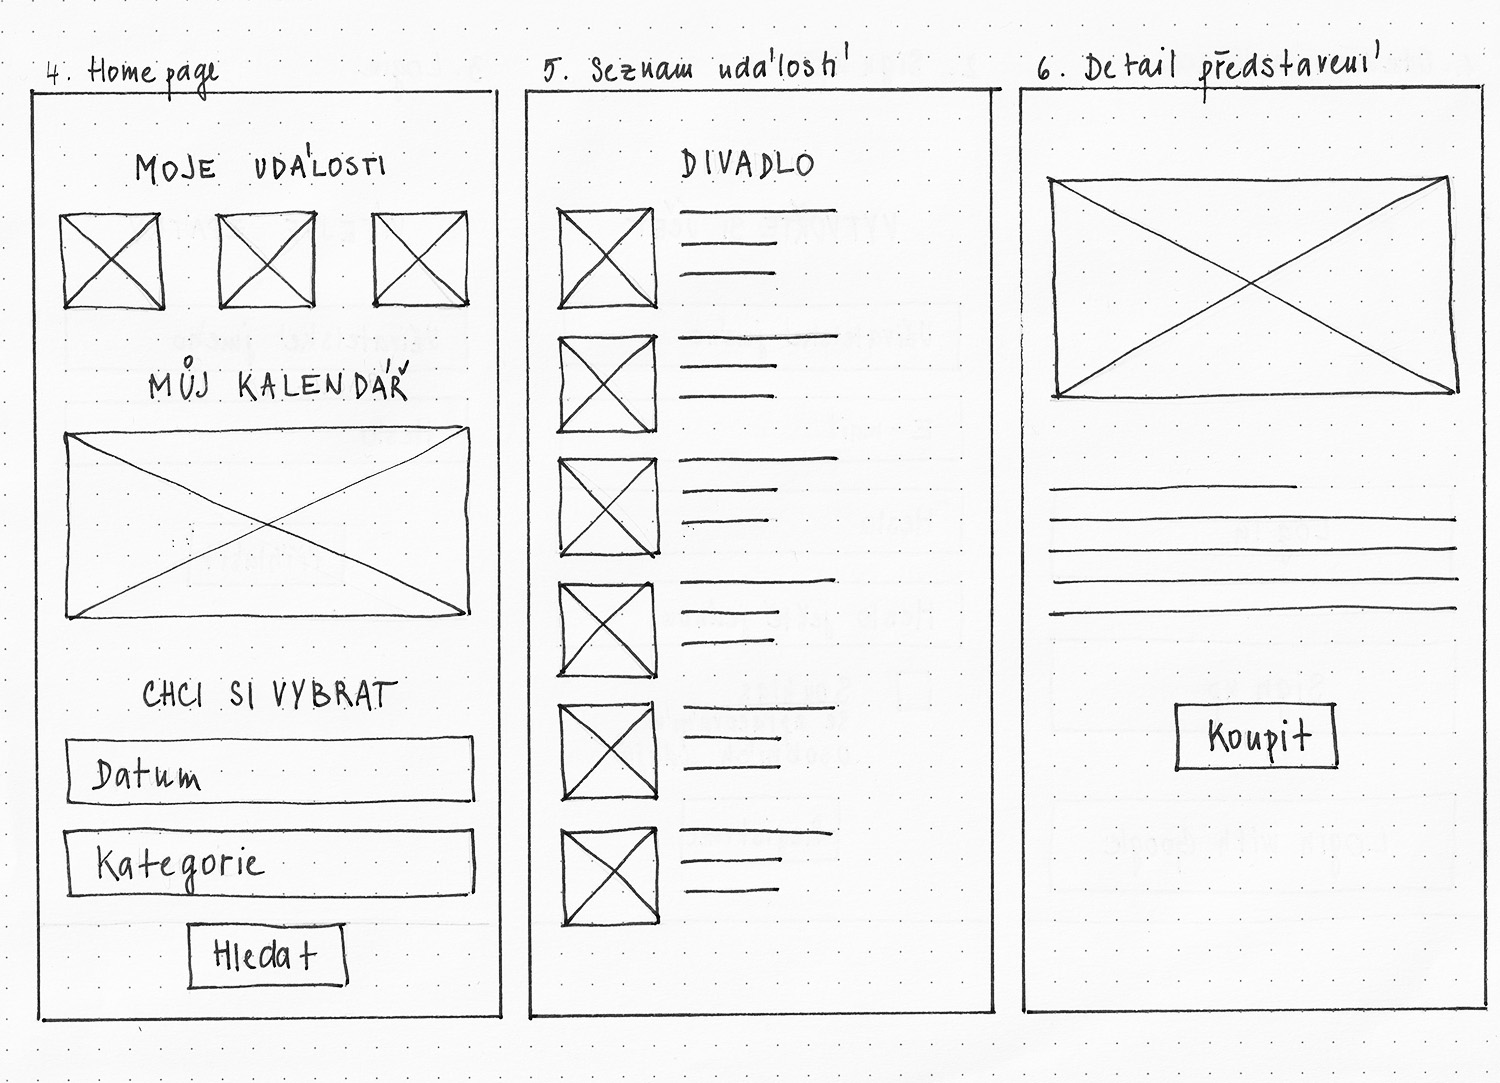 4. Home page
MOJE UDÁLOSTI
MŮJ KALENDÁŘ
CHCI SI VYBRAT
Datum
Kategorie
Hledat
5. Seznam událostí
DIVADLO
6. Detail představení
Koupit